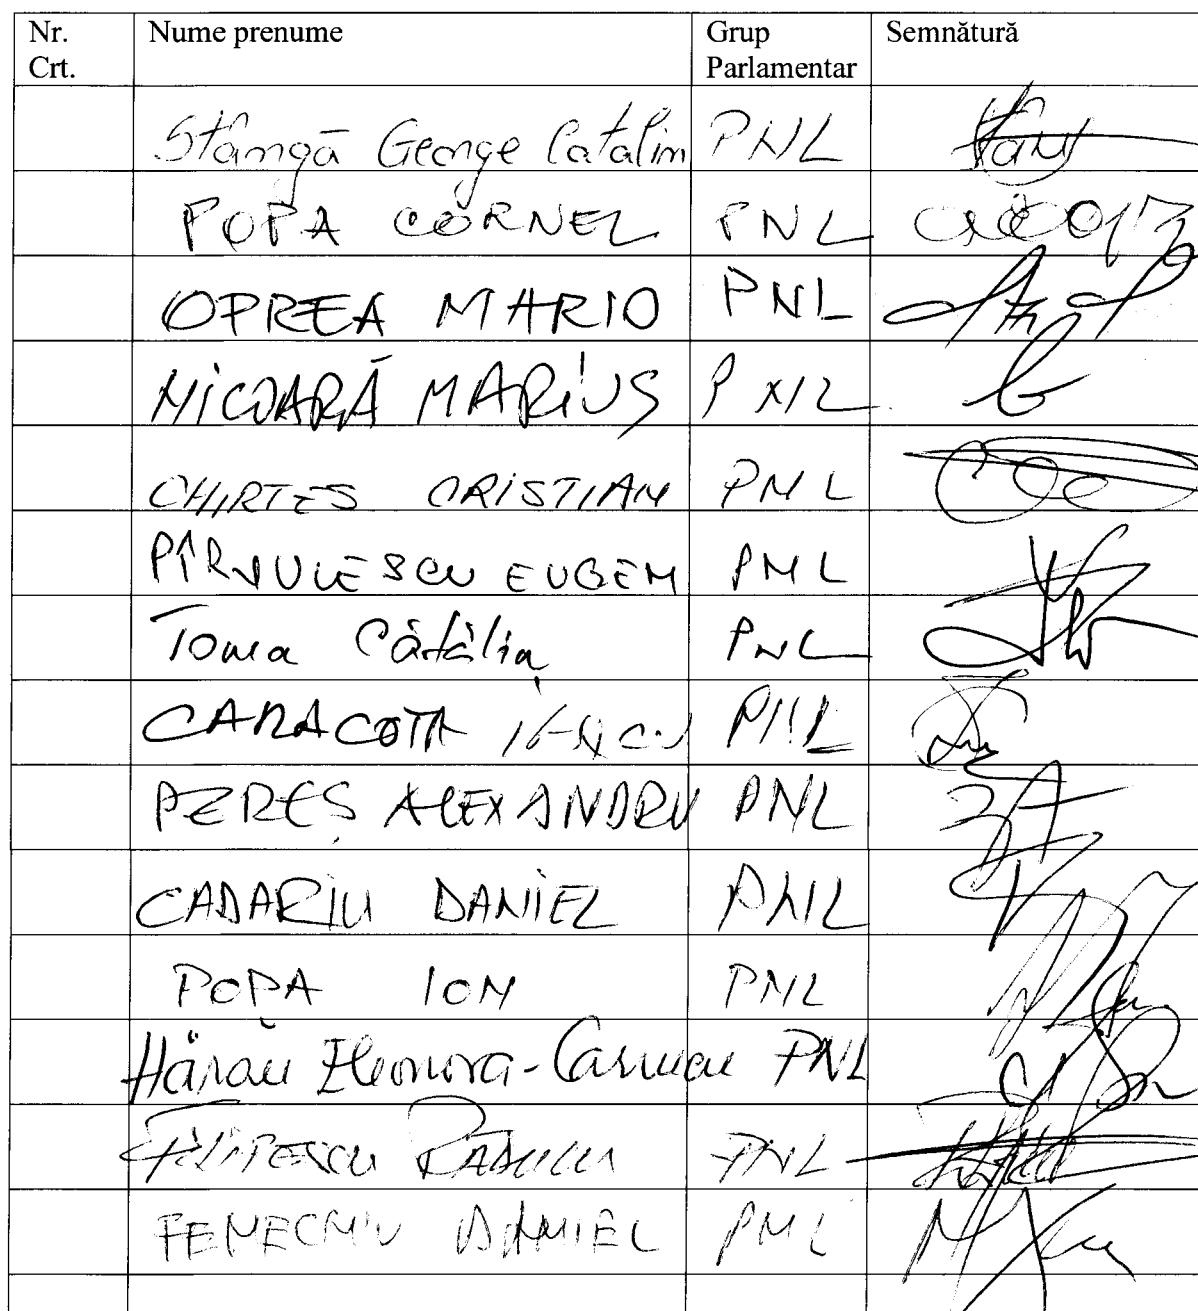 Nr. Crt. Nume prenume Grup Parlamentar Semnătură
Stângă George Catalin PNL
POPA CORNEL PNL
OPREA MARIO PNL
NICOARĂ MARIUS PNL
CHIRTES CRISTIAN PNL
PÎRVULESCU EUGEN PNL
Toma Cătălin PNL
CARACOTA PNL
PERES ALEXANDRU PNL
CADARIU DANIEL PNL
POPA ION PNL
Hărău Eleonora-Carmen PNL
FILIPESCU RADUCU PNL
FENECHIU DANIEL PNL